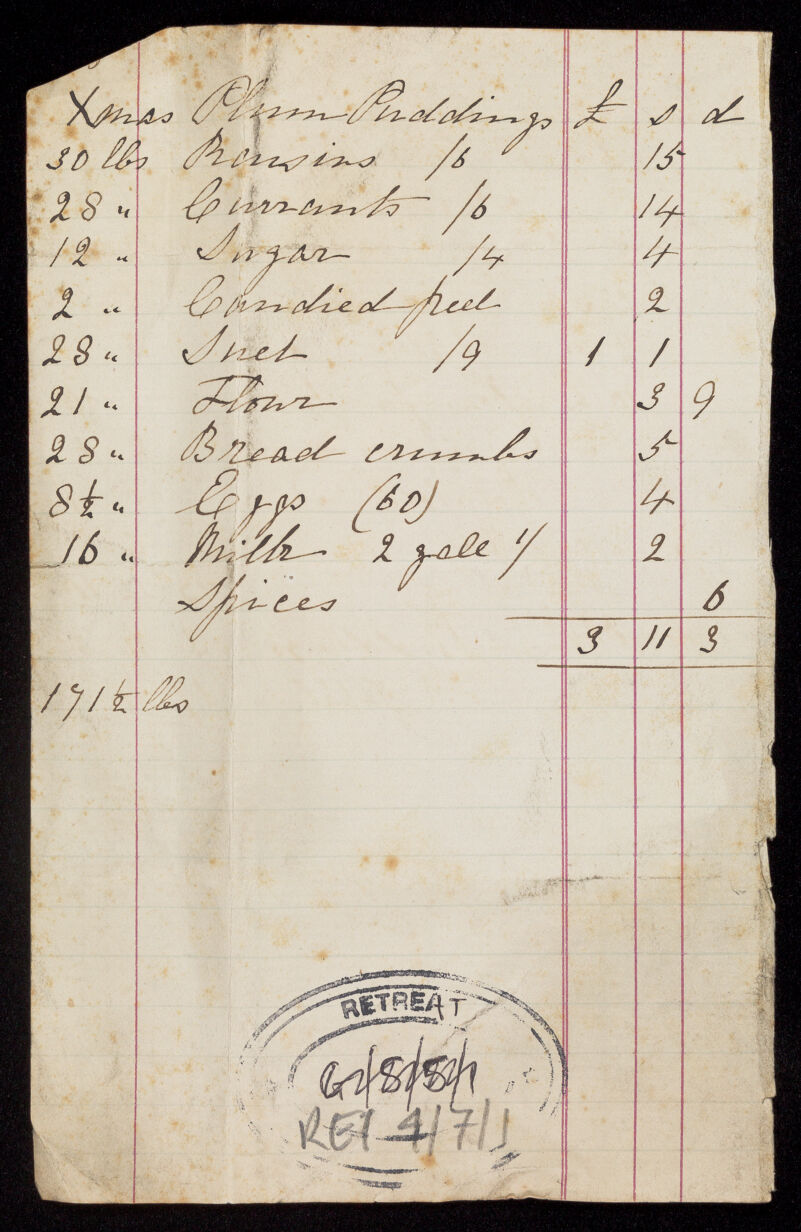 Xmas Plum Puddings £ s d
30 lbs Raisins /6 15
28 " Currants /6 14
12 " Sugar /4 4
2 " Candied peel 2
28 " Suet /9 1 1
21 " Flour 3 9
28 " Bread crumbs 5
8½ " Eggs (60) 4
16 " Milk 2 galls 1/ 2
Spices 6
3 11 3
171½ lbs
RETREAT
G/8/5/1
RET 4/7/1